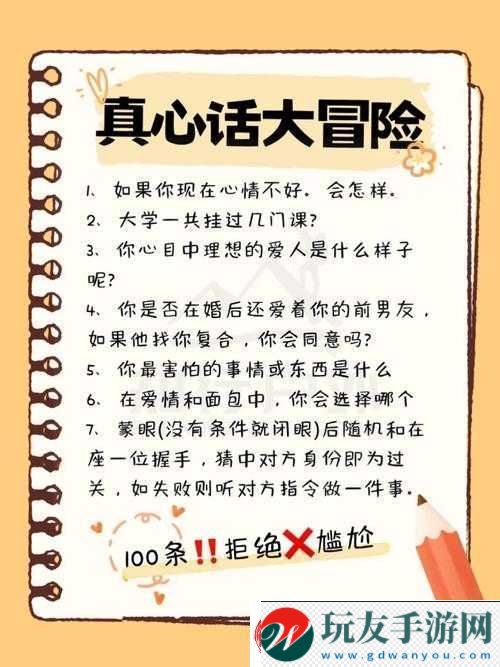 真心话大冒险
1、如果你现在心情不好。会怎样。
2、大学一共挂过几门课?
3、你心目中理想的爱人是什么样子
呢?
4、你是否在婚后还爱着你的前男友，
如果他找你复合，你会同意吗?
5、你最害怕的事情或东西是什么
6、在爱情和面包中，你会选择哪个
7、蒙眼(没有条件就闭眼)后随机和在
座一位握手，猜中对方身份即为过
关，如失败则听对方指令做一件事。
100条‼️拒绝❌尴尬
玩友手游网
www.gdwanyou.com